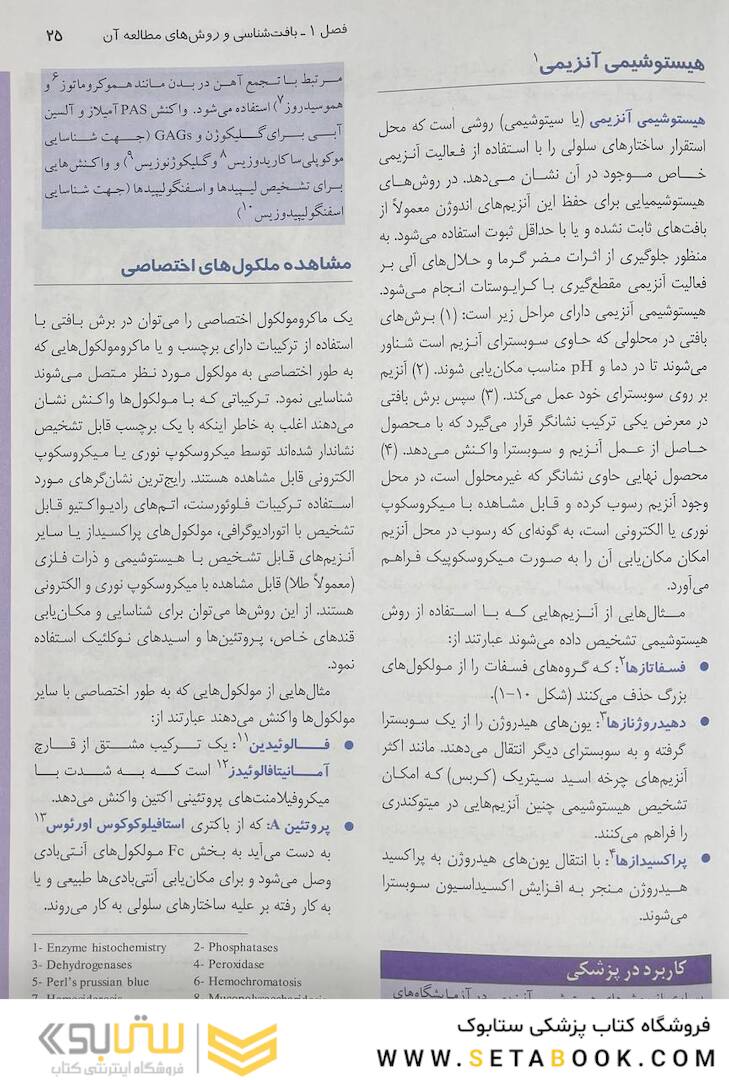 فصل ۱ ـ بافت‌شناسی و روش‌های مطالعه آن ۲۵
هیستوشیمی آنزیمی۱
هیستوشیمی آنزیمی (یا سیتوشیمی) روشی است که محل
استقرار ساختارهای سلولی را با استفاده از فعالیت آنزیمی
خـاص مـوجود در آن نشـان مـی‌دهد. در روش‌هـای
هیستوشیمیایی برای حفظ این آنزیم‌های اندوژن معمولاً از
بافت‌های ثابت نشده و یا با حداقل ثبوت استفاده می‌شود. به
منظور جلوگیری از اثـرات مـضر گـرما و حـلال‌های آلی بـر
فعالیت آنزیمی مقطع‌گیری بـا کـرایـوستات انجام مـی‌شود.
هیستوشیمی آنزیمی دارای مراحل زیر است: (۱) بـرش‌های
بافتی در محلولی که حـاوی سـوبسترای آنـزیم است شـناور
می‌شوند تا در دما و pH مناسب مکان‌یابی شوند. (۲) آنزیم
بر روی سوبسترای خود عمل می‌کند. (۳) سپس برش بافتی
در معرض یکی ترکیب نشانگر قرار می‌گیرد که با مـحصول
حـاصل از عـمل آنـزیم و سـوبسترا واکـنش مـی‌دهد. (۴)
محصول نهایی حاوی نشانگر که غیرمحلول است، در محل
وجود آنزیم رسوب کرده و قـابل مشـاهده بـا مـیکروسکوپ
نوری یا الکترونی است، به گونه‌ای که رسوب در محل آنزیم
امکان مکان‌یابی آن را به صورت مـیکروسکوپیک فـراهـم
می‌آورد.
مـثال‌هایی از آنـزیم‌هایی کـه بـا اسـتفاده از روش
هیستوشیمی تشخیص داده می‌شوند عبارتند از:
● فسفاتازها۲: کـه گـروه‌های فسـفات را از مـولکول‌های
بزرگ حذف می‌کنند (شکل ۱۰-۱).
● دهیدروژنازها۳: یون‌های هیدروژن را از یک سـوبسترا
گرفته و به سوبسترای دیگر انتقال می‌دهند. مانند اکثر
آنزیم‌های چرخه اسید سیتریک (کـربس) کـه امکـان
تشخیص هیستوشیمی چنین آنزیم‌هایی در میتوکندری
را فراهم می‌کنند.
● پراکسیدازها۴: با انتقال یون‌های هیدروژن به پراکسید
هـیدروژن منجر بـه افـزایش اکسیداسیون سـوبسترا
می‌شوند.
کاربرد در پزشکی
مرتبط بـا تـجمع آهـن در بـدن مـانند هـموکروماتوز۶ و
هموسیدروز۷) استفاده می‌شود. واکنش PAS آمیلاز و آلسین
آبـی بـرای گـلیکوژن و GAGs (جـهت شـناسایی
موکوپلی‌ساکاریدوزیس۸ و گلیکوژنوزیس۹) و واکنش‌هایی
برای تشخیص لیپیدها و اسفنگولیپیدها (جهت شناسایی
اسفنگولیپیدوزیس۱۰)
مشاهده ملکول‌های اختصاصی
یک ماکرومولکول اختصاصی را می‌توان در برش بـافتی بـا
استفاده از ترکیبات دارای برچسب و یا ماکرومولکول‌هایی که
به طور اختصاصی به مولکول مـورد نـظر مـتصل مـی‌شوند
شناسایی نمود. تـرکیباتی کـه بـا مـولکول‌ها واکـنش نشـان
می‌دهند اغلب به خاطر اینکه با یک برچسب قابل تشخیص
نشاندار شده‌اند توسط میکروسکوپ نوری یـا مـیکروسکوپ
الکترونی قابل مشاهده هستند. رایج‌ترین نشان‌گرهای مورد
اسـتفاده تـرکیبات فـلوئورسنت، اتـم‌های رادیـواکـتیو قـابل
تشخیص با اتورادیوگرافی، مولکول‌های پراکسیداز یـا سـایر
آنـزیم‌های قـابل تشـخیص بـا هـیستوشیمی و ذرات فـلزی
(معمولاً طلا) قابل مشاهده با میکروسکوپ نوری و الکترونی
هستند. از این روش‌ها می‌توان برای شناسایی و مکان‌یابی
قندهای خاص، پروتئین‌ها و اسیدهای نـوکلئیک اسـتفاده
نمود.
مثال‌هایی از مولکول‌هایی که به طور اختصاصی با سایر
مولکول‌ها واکنش می‌دهند عبارتند از:
● فـالوئیدین۱۱: یک تـرکیب مشـتق از قـارچ
آمـانیتافالوئیدز۱۲ است کـه بـه شـدت بـا
میکروفیلامنت‌های پروتئینی اکتین واکنش می‌دهد.
● پروتئین A: که از باکتری استافیلوکوکوس اورئوس۱۳
به دست می‌آید به بخش Fc مـولکول‌های آنـتی‌بادی
وصل می‌شود و برای مکان‌یابی آنتی‌بادی‌ها طبیعی و یا
به کار رفته بر علیه ساختارهای سلولی به کار می‌روند.
1- Enzyme histochemistry 2- Phosphatases
3- Dehydrogenases 4- Peroxidase
5- Perl's prussian blue 6- Hemochromatosis
7- Hemosiderosis 8- Mucopolysaccharidosis
ستابوک
فروشگاه اینترنتی کتاب
فروشگاه کتاب پزشکی ستابوک
WWW.SETABOOK.COM